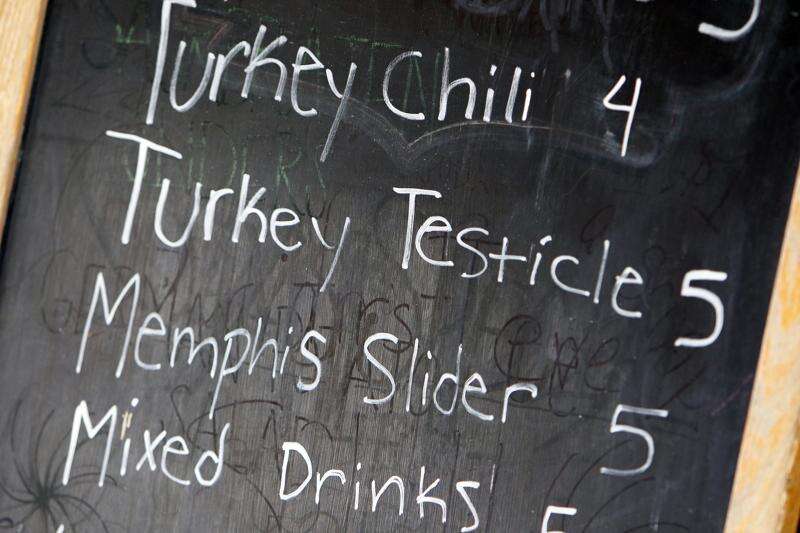 Turkey Chili 4
Turkey Testicle 5
Memphis Slider 5
Mixed Drinks 5